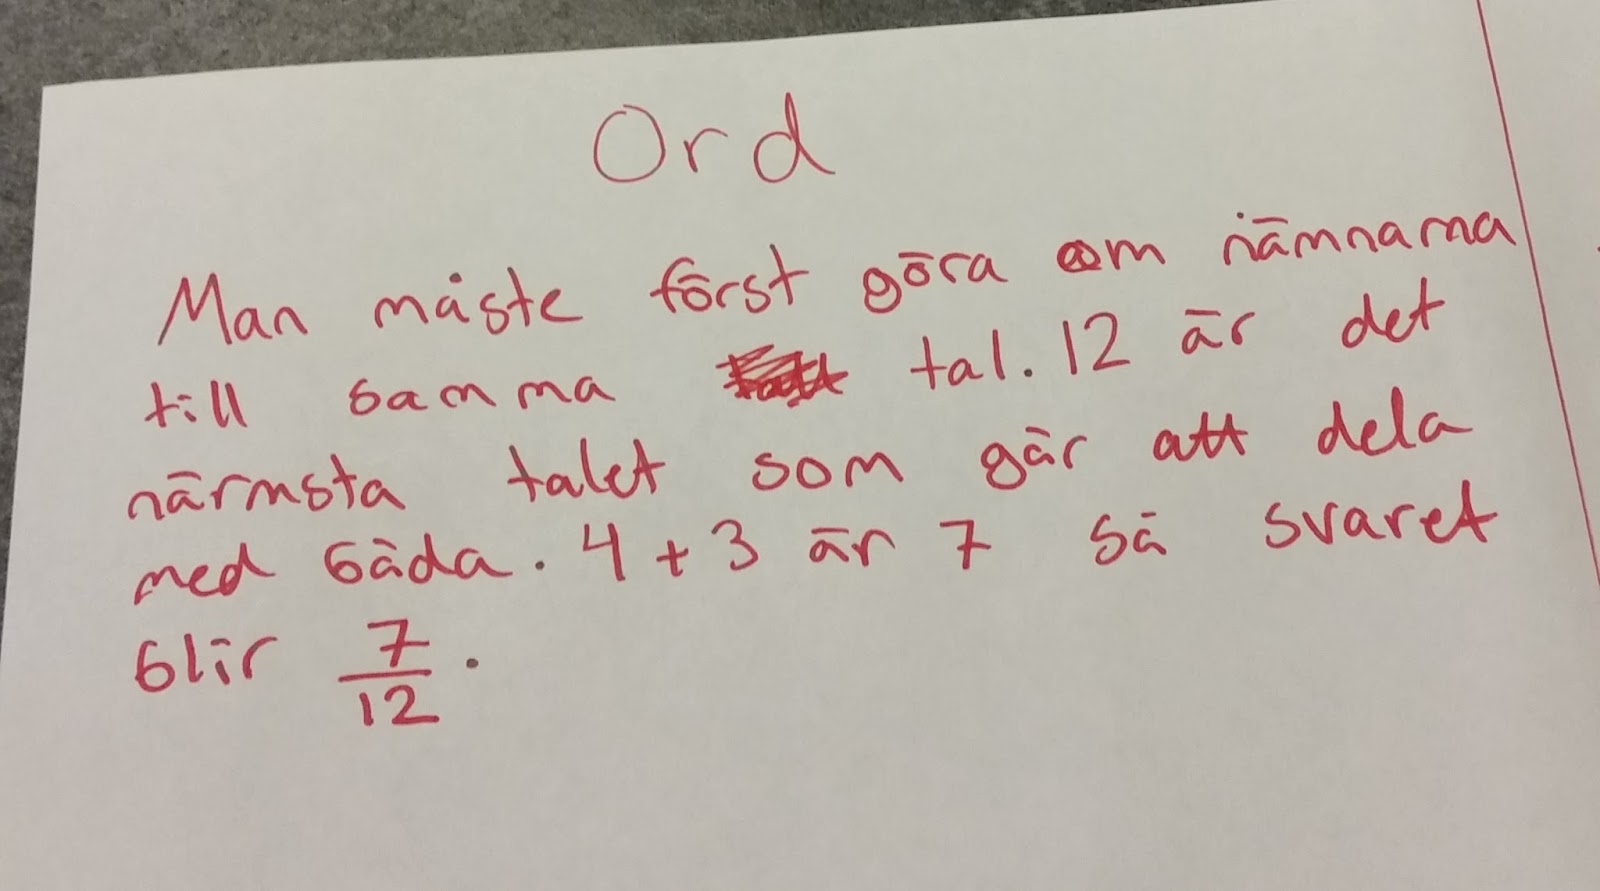 Ord
Man måste först göra om nämnarna
till samma tal. 12 är det
närmsta talet som går att dela
med båda. 4 + 3 är 7 så svaret
blir 7/12.